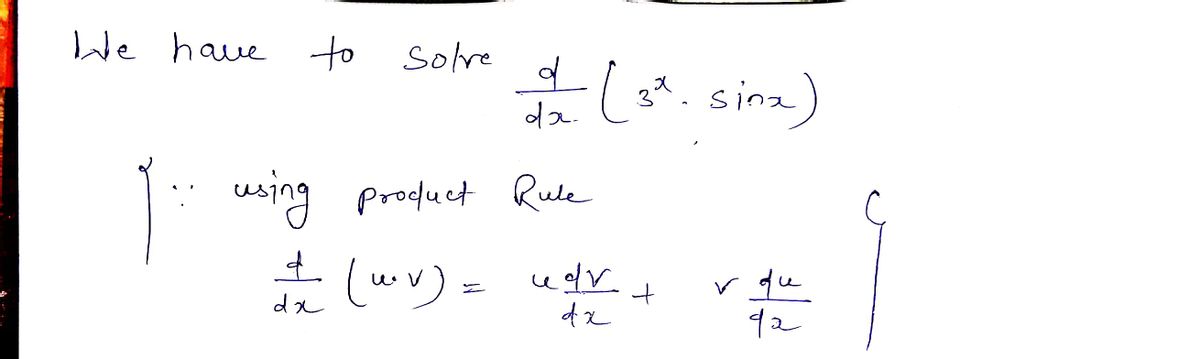 We have to solve d/dx (3^x . sinx)
∵ using product Rule
d/dx (u.v) = u dv/dx + v du/dx